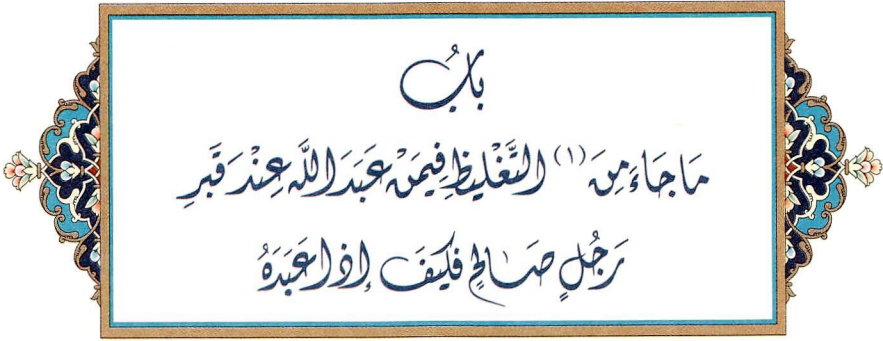 بَابُ
مَا جَاءَ مِنَ (١) التَّغْلِيظِ فِيمَنْ عَبَدَ اللَّهَ عِنْدَ قَبْرِ
رَجُلٍ صَالِحٍ فَكَيْفَ إِذَا عَبَدَهُ